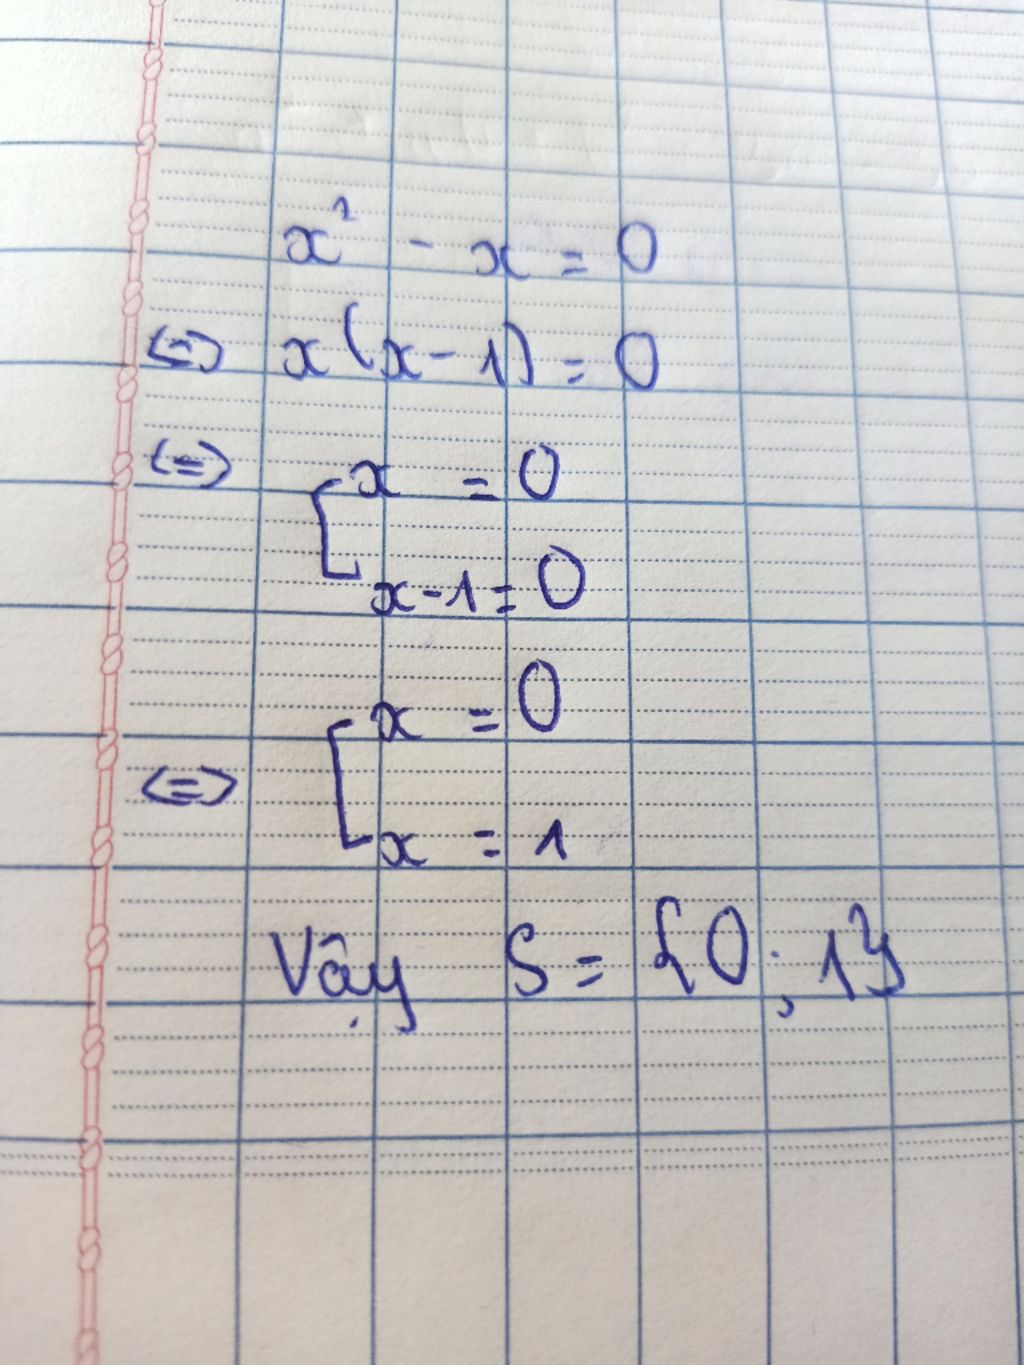 x² - x = 0
<=> x(x-1) = 0
<=> [ x = 0
x-1 = 0
<=> [ x = 0
x = 1
Vậy S = {0; 1}